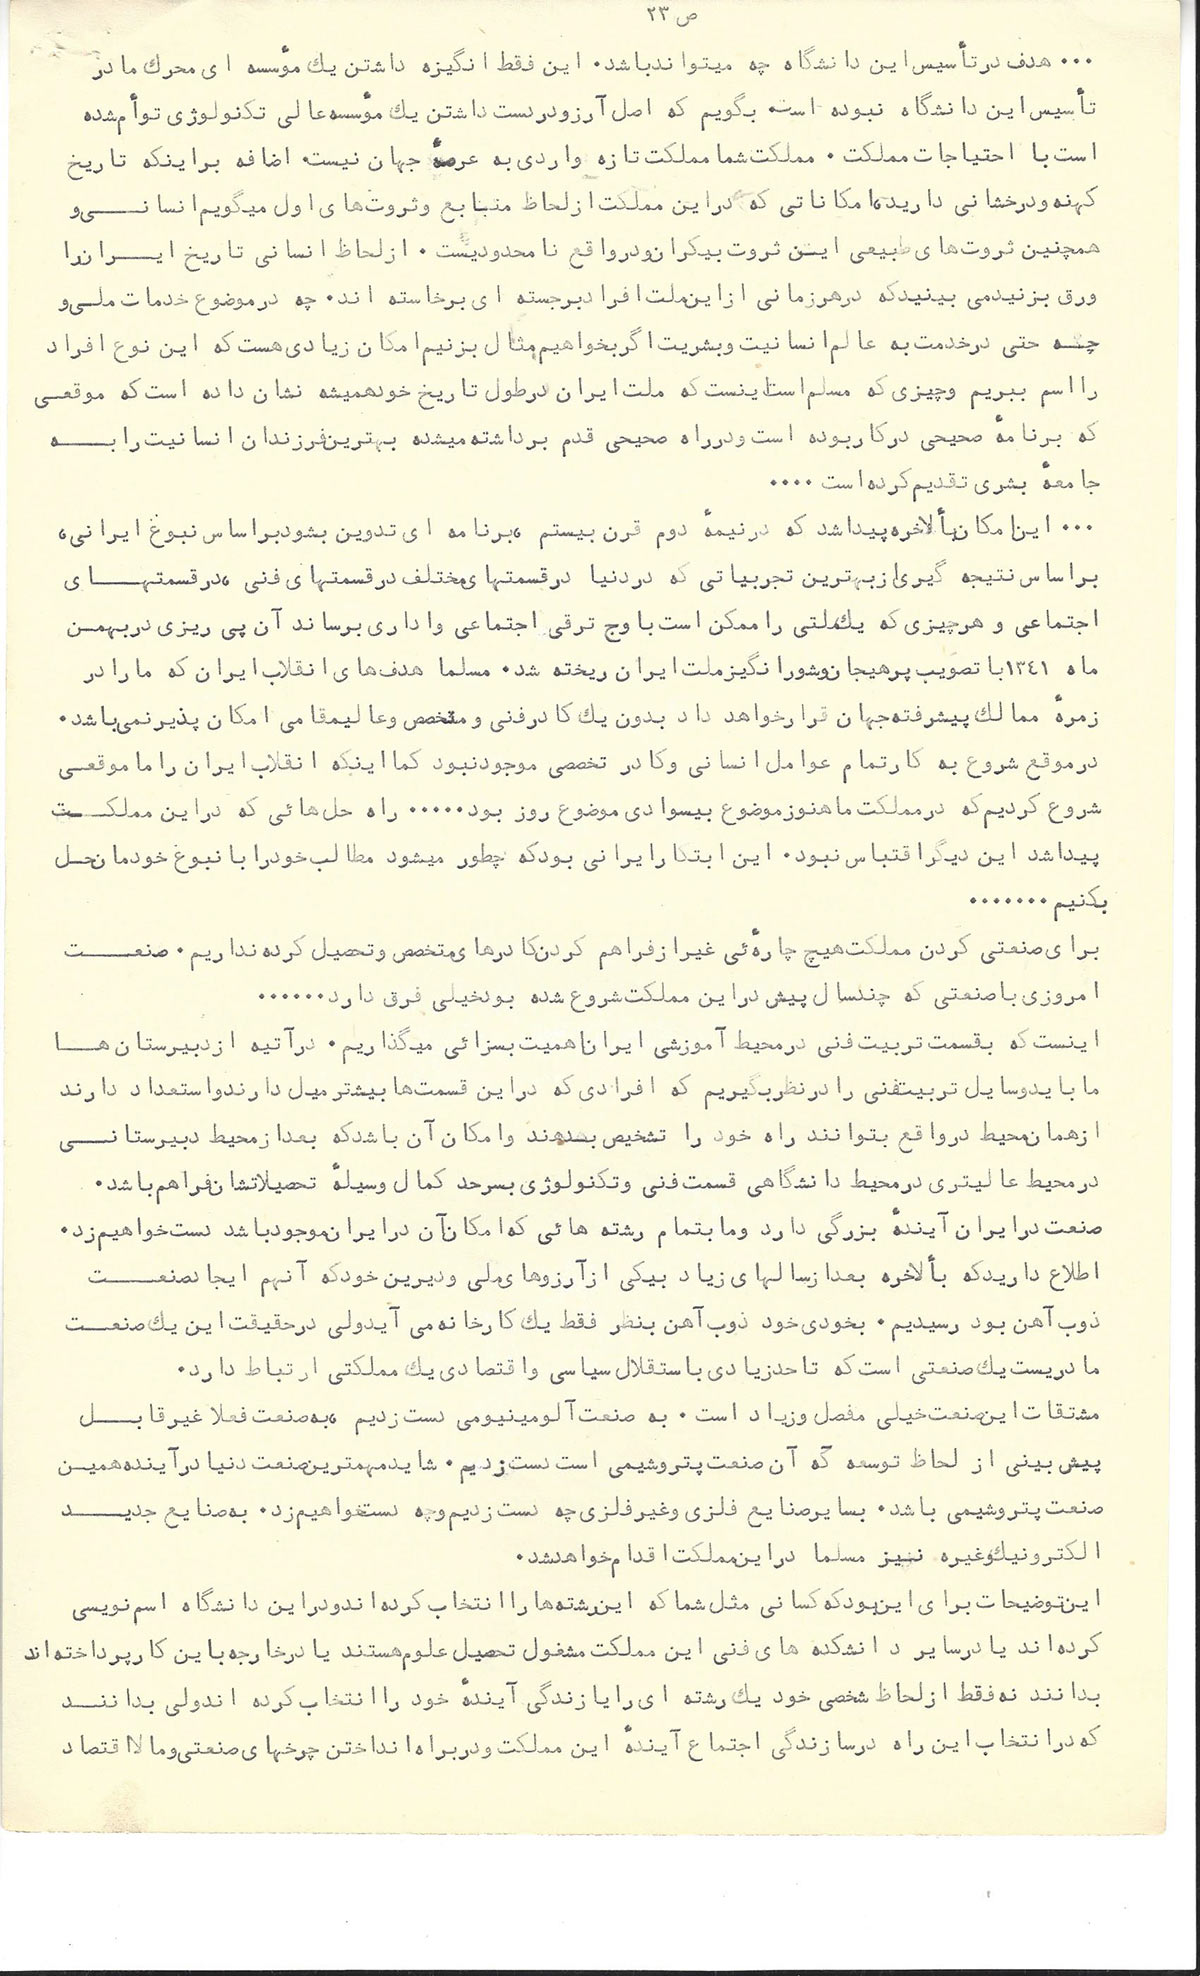 ص ۲۳
۰۰۰ هدف در تأسیس این دانشگاه چه میتواند باشد۰ این فقط انگیزه داشتن یك مؤسسه ای محرك ما در
تأسیس این دانشگاه نبوده است۰ بگویم که اصل آرزو در دست داشتن یك مؤسسه عالی تکنولوژی توأم شده
است با احتیاجات مملکت ۰ مملکت شما مملکت تازه واردی به عرصهٔ جهان نیست۰ اضافه بر اینکه تاریخ
کهنه و درخشانی دارید، امکاناتی که در این مملکت از لحاظ منابع و ثروت های اول میگویم انسانــی و
همچنین ثروت های طبیعی ایــن ثروت بیکران و در واقع نامحدودیست ۰ از لحاظ انسانی تاریخ ایـــران را
ورق بزنید می بینید که در هر زمانی از این ملت افراد برجسته ای برخاسته اند۰ چه در موضوع خدمات ملی و
چــه حتی در خدمت به عالم انسانیت و بشریت اگر بخواهیم مثال بزنیم امکان زیادی هست که این نوع افراد
را اسم ببریم و چیزی که مسلم است اینست که ملت ایران در طول تاریخ خود همیشه نشان داده است که موقعی
که برنامهٔ صحیحی در کار بوده است و در راه صحیحی قدم برداشته میشده بهترین فرزندان انسانیت را بـــه
جامعهٔ بشری تقدیم کرده است ۰۰۰۰
۰۰۰ این امکان بألاخره پیدا شد که در نیمهٔ دوم قرن بیستم ، برنامه ای تدوین بشود بر اساس نبوغ ایرانی،
بر اساس نتیجه گیری از بهترین تجربیاتی که در دنیا در قسمتهای مختلف در قسمتهای فنی ، در قسمتهـــای
اجتماعی و هر چیزی که یك ملتی را ممکن است با وج ترقی اجتماعی و اداری برساند آن پی ریزی در بهمــن
ماه ۱۳٤۱ با تصویب پر هیجان و شورانگیز ملت ایران ریخته شد۰ مسلما هدف های انقلاب ایران که ما را در
زمرهٔ ممالك پیشرفته جهان قرار خواهد داد بدون یك کادر فنی و متخصص و عالیمقامی امکان پذیر نمی باشد۰
در موقع شروع به کار تمام عوامل انسانی و کادر تخصصی موجود نبود کما اینکه انقلاب ایران را ما موقعــی
شروع کردیم که در مملکت ما هنوز موضوع بیسوادی موضوع روز بود۰۰۰۰۰ راه حل هائی که در این مملکـــت
پیدا شد این دیگر اقتباس نبود۰ این ابتکار ایرانی بود که چطور میشود مطالب خود را با نبوغ خودمان حــل
بکنیم ۰۰۰۰۰۰۰
برای صنعتی کردن مملکت هیچ چارهٔ ئی غیر از فراهم کردن کادرهای متخصص و تحصیل کرده نداریم۰ صنعـــت
امروزی با صنعتی که چند سال پیش در این مملکت شروع شده بود خیلی فرق دارد۰۰۰۰۰۰
اینست که بقسمت تربیت فنی در محیط آموزشی ایران اهمیت بسزائی میگذاریم۰ در آتیه از دبیرستان هـــا
ما باید وسایل تربیت فنی را در نظر بگیریم که افرادی که در این قسمت ها بیشتر میل دارند و استعداد دارند
از همان محیط در واقع بتوانند راه خود را تشخیص بدهند و امکان آن باشد که بعد از محیط دبیرستانـــی
در محیط عالیتری در محیط دانشگاهی قسمت فنی و تکنولوژی بسر حد کمال وسیلهٔ تحصیلاتشان فراهم باشد۰
صنعت در ایران آیندهٔ بزرگی دارد و ما بتمام رشته هائی که امکان آن در ایران موجود باشد دست خواهیم زد۰
اطلاع دارید که بألاخره بعد از سالهای زیاد بیکی از آرزوهای ملی و دیرین خود که آنهم ایجاد صنعـــت
ذوب آهن بود رسیدیم۰ بخودی خود ذوب آهن بنظر فقط یك کارخانه می آید ولی در حقیقت این یك صنعـــت
مادریست یك صنعتی است که تا حد زیادی با استقلال سیاسی و اقتصادی یك مملکتی ارتباط دارد۰
مشتقات این صنعت خیلی مفصل و زیاد است ۰ به صنعت آلومینیومی دست زدیم ، به صنعت فعلا غیر قابـــل
پیش بینی از لحاظ توسعه که آن صنعت پتروشیمی است دست زدیم۰ شاید مهمترین صنعت دنیا در آینده همیــن
صنعت پتروشیمی باشد۰ بسایر صنایع فلزی و غیر فلزی چه دست زدیم و چه دست خواهیم زد۰ به صنایع جدیـــد
الکترونیك و غیره نــیز مسلما در این مملکت اقدام خواهد شد۰
این توضیحات برای این بود که کسانی مثل شما که این رشته ها را انتخاب کرده اند و در این دانشگاه اسم نویسی
کرده اند یا در سایر دانشکده های فنی این مملکت مشغول تحصیل علوم هستند یا در خارجه باین کار پرداخته اند
بدانند نه فقط از لحاظ شخصی خود یك رشته ای را یا زندگی آیندهٔ خود را انتخاب کرده اند ولی بداننـــد
که در انتخاب این راه در سازندگی اجتماع آیندهٔ این مملکت و در براه انداختن چرخهای صنعتی و مالا اقتصاد